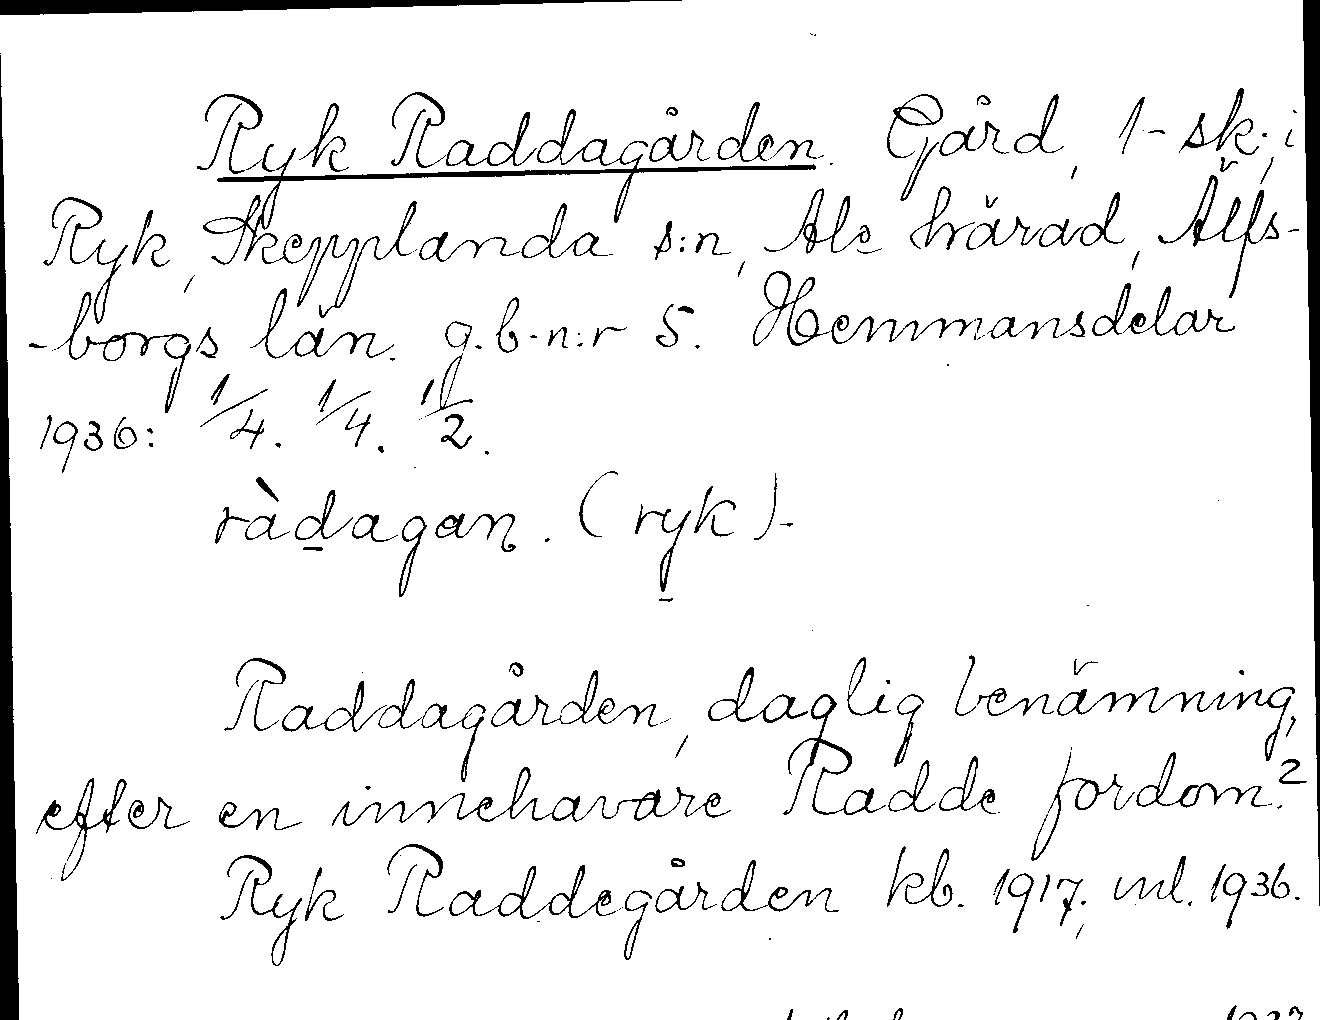 Ryk Raddagården. Gård, 1-sk; i
Ryk, Skepplanda s:n, Ale härad, Älfs-
-borgs län. g.b.n:r 5. Hemmansdelar
1936: 1/4. 1/4. 1/2.
ràdagan. (ryk).
Raddagården, daglig benämning,
efter en innehavare Radde fordom.2
Ryk Raddegården kb. 1917; ml. 1936.